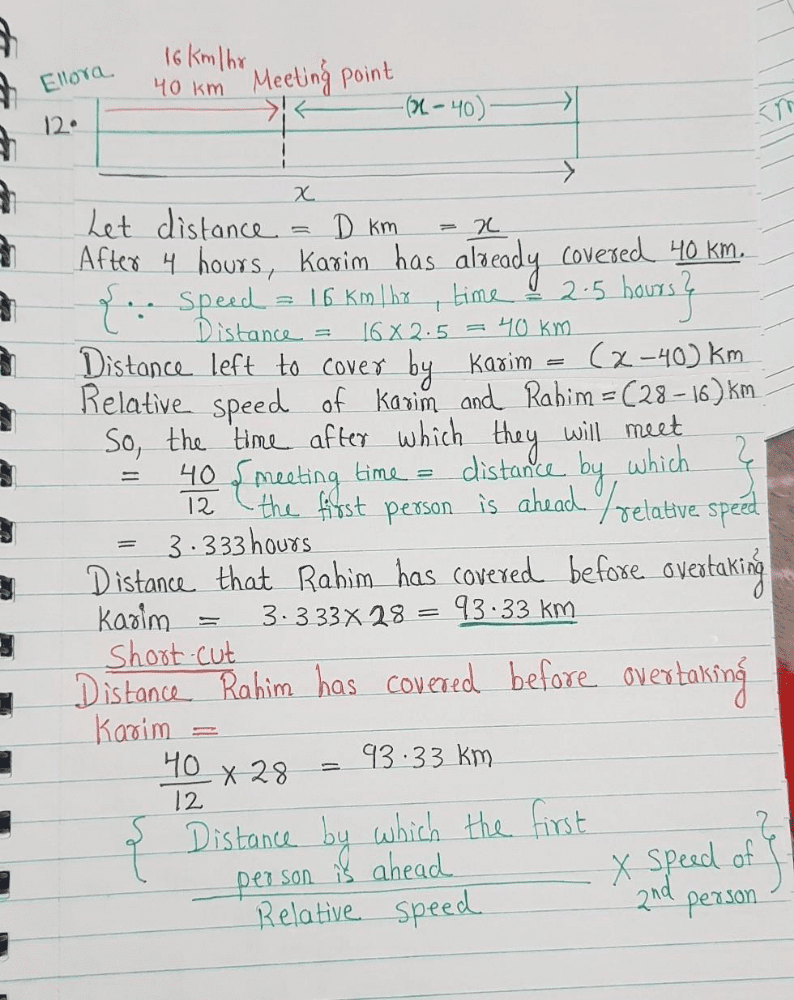 16 Km/hr
Ellora 40 km Meeting point
12. (x-40)
x
Let distance = D km = x
After 4 hours, Karim has already covered 40 km.
{∵ Speed = 16 Km/hr, time = 2.5 hours}
Distance = 16 x 2.5 = 40 km
Distance left to cover by Karim = (x-40) Km
Relative speed of Karim and Rahim = (28-16) Km
So, the time after which they will meet
= 40/12 {meeting time = distance by which
the first person is ahead / relative speed}
= 3.333 hours
Distance that Rahim has covered before overtaking
Karim = 3.333 x 28 = 93.33 km
Short-cut
Distance Rahim has covered before overtaking
Karim =
40/12 x 28 = 93.33 km
{Distance by which the first
person is ahead x Speed of
Relative speed 2nd person}